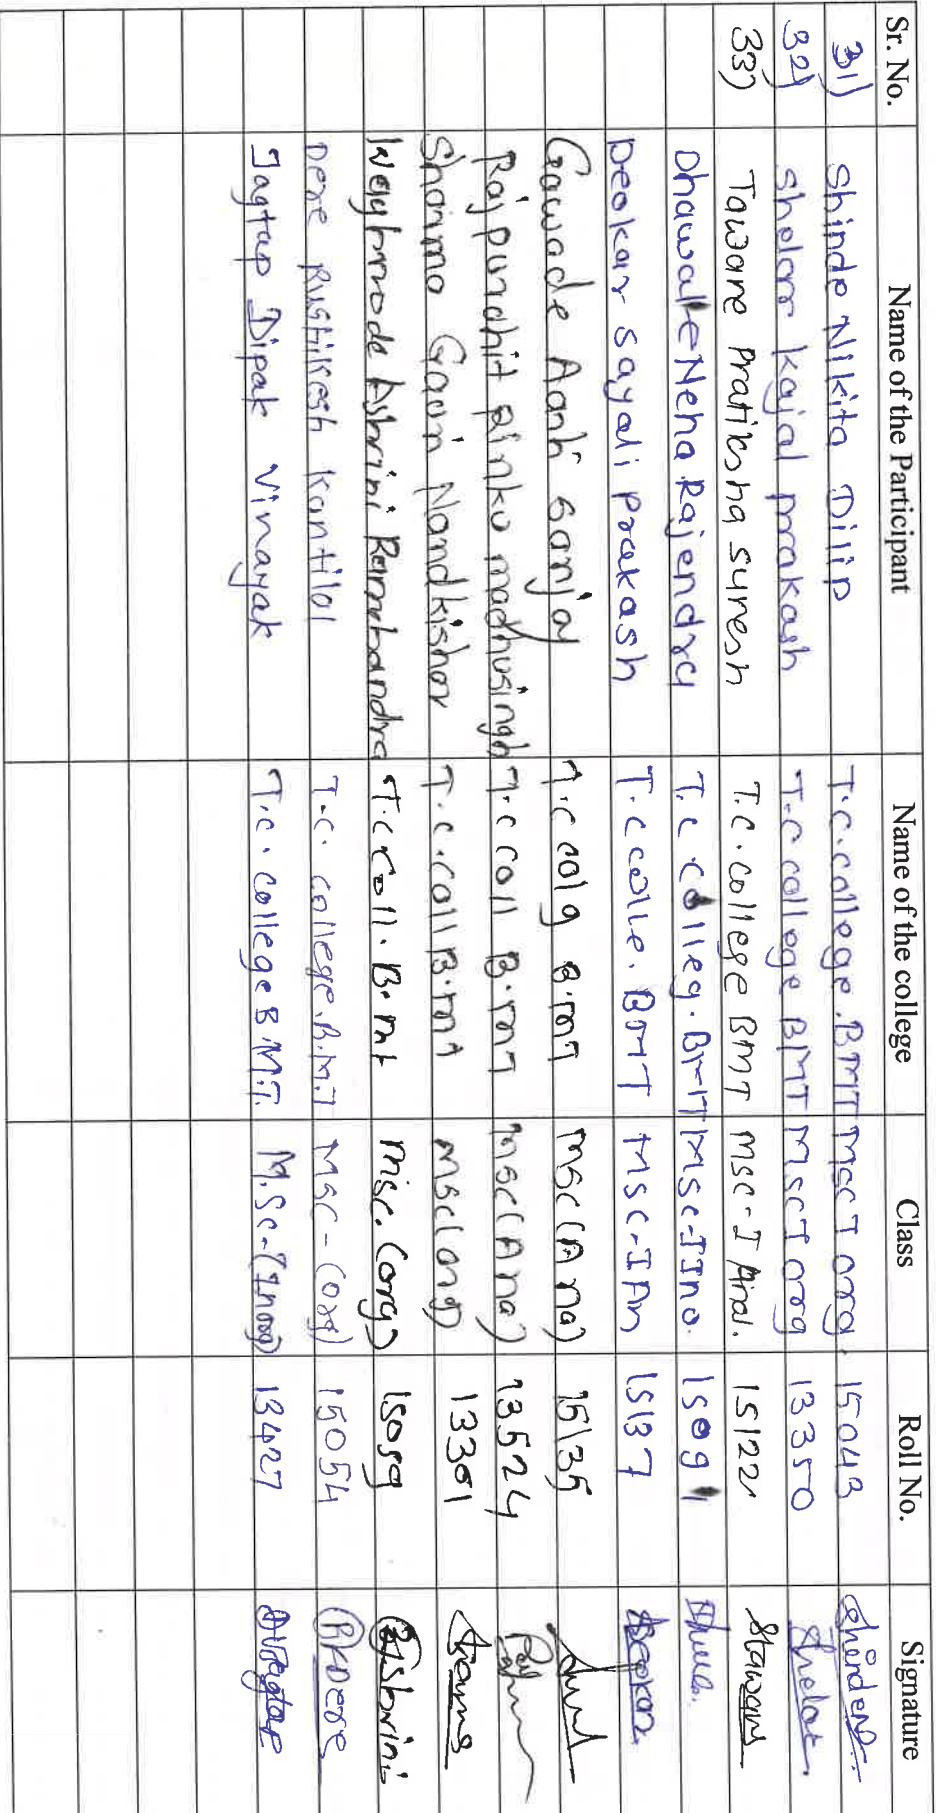 Sr. No. Name of the Participant Name of the college Class Roll No. Signature
31) Shinde Nikita Dilip T.C. college. BMT MscI org. 15043 Shinde
32) Shelar kajal prakash T.C college BMT MscI org 13350 Shelar
33) Taware Pratiksha suresh T.C. college BMT msc-I Anal. 15122
Dhawale Neha Rajendra T.C. colleg. BMT Msc-I Ino. 15091
Deokar Sayali Prakash T.C colle. BMT Msc-I An 15137 Deokar
Gawade Aarti sanjay T.C colg B.mT msc(Ana) 15135
Rajpurohit pinku madhusingh T.C coll B.mT msc(Ana) 13524
Sharma Gauri Nandkishor T.C.coll B.mT msc(org) 13301 Sharma
Waghmode Ashvini Ramchandra T.C coll. B.mt msc.(org) 15059 Ashvini
Dere Rushikesh Kantilal T.C. college.B.M.T MSC-(org) 15054 RKDere
Jagtap Dipak Vinayak T.C. college B.M.T. M.Sc-(Inorg) 13427 DVJagtap